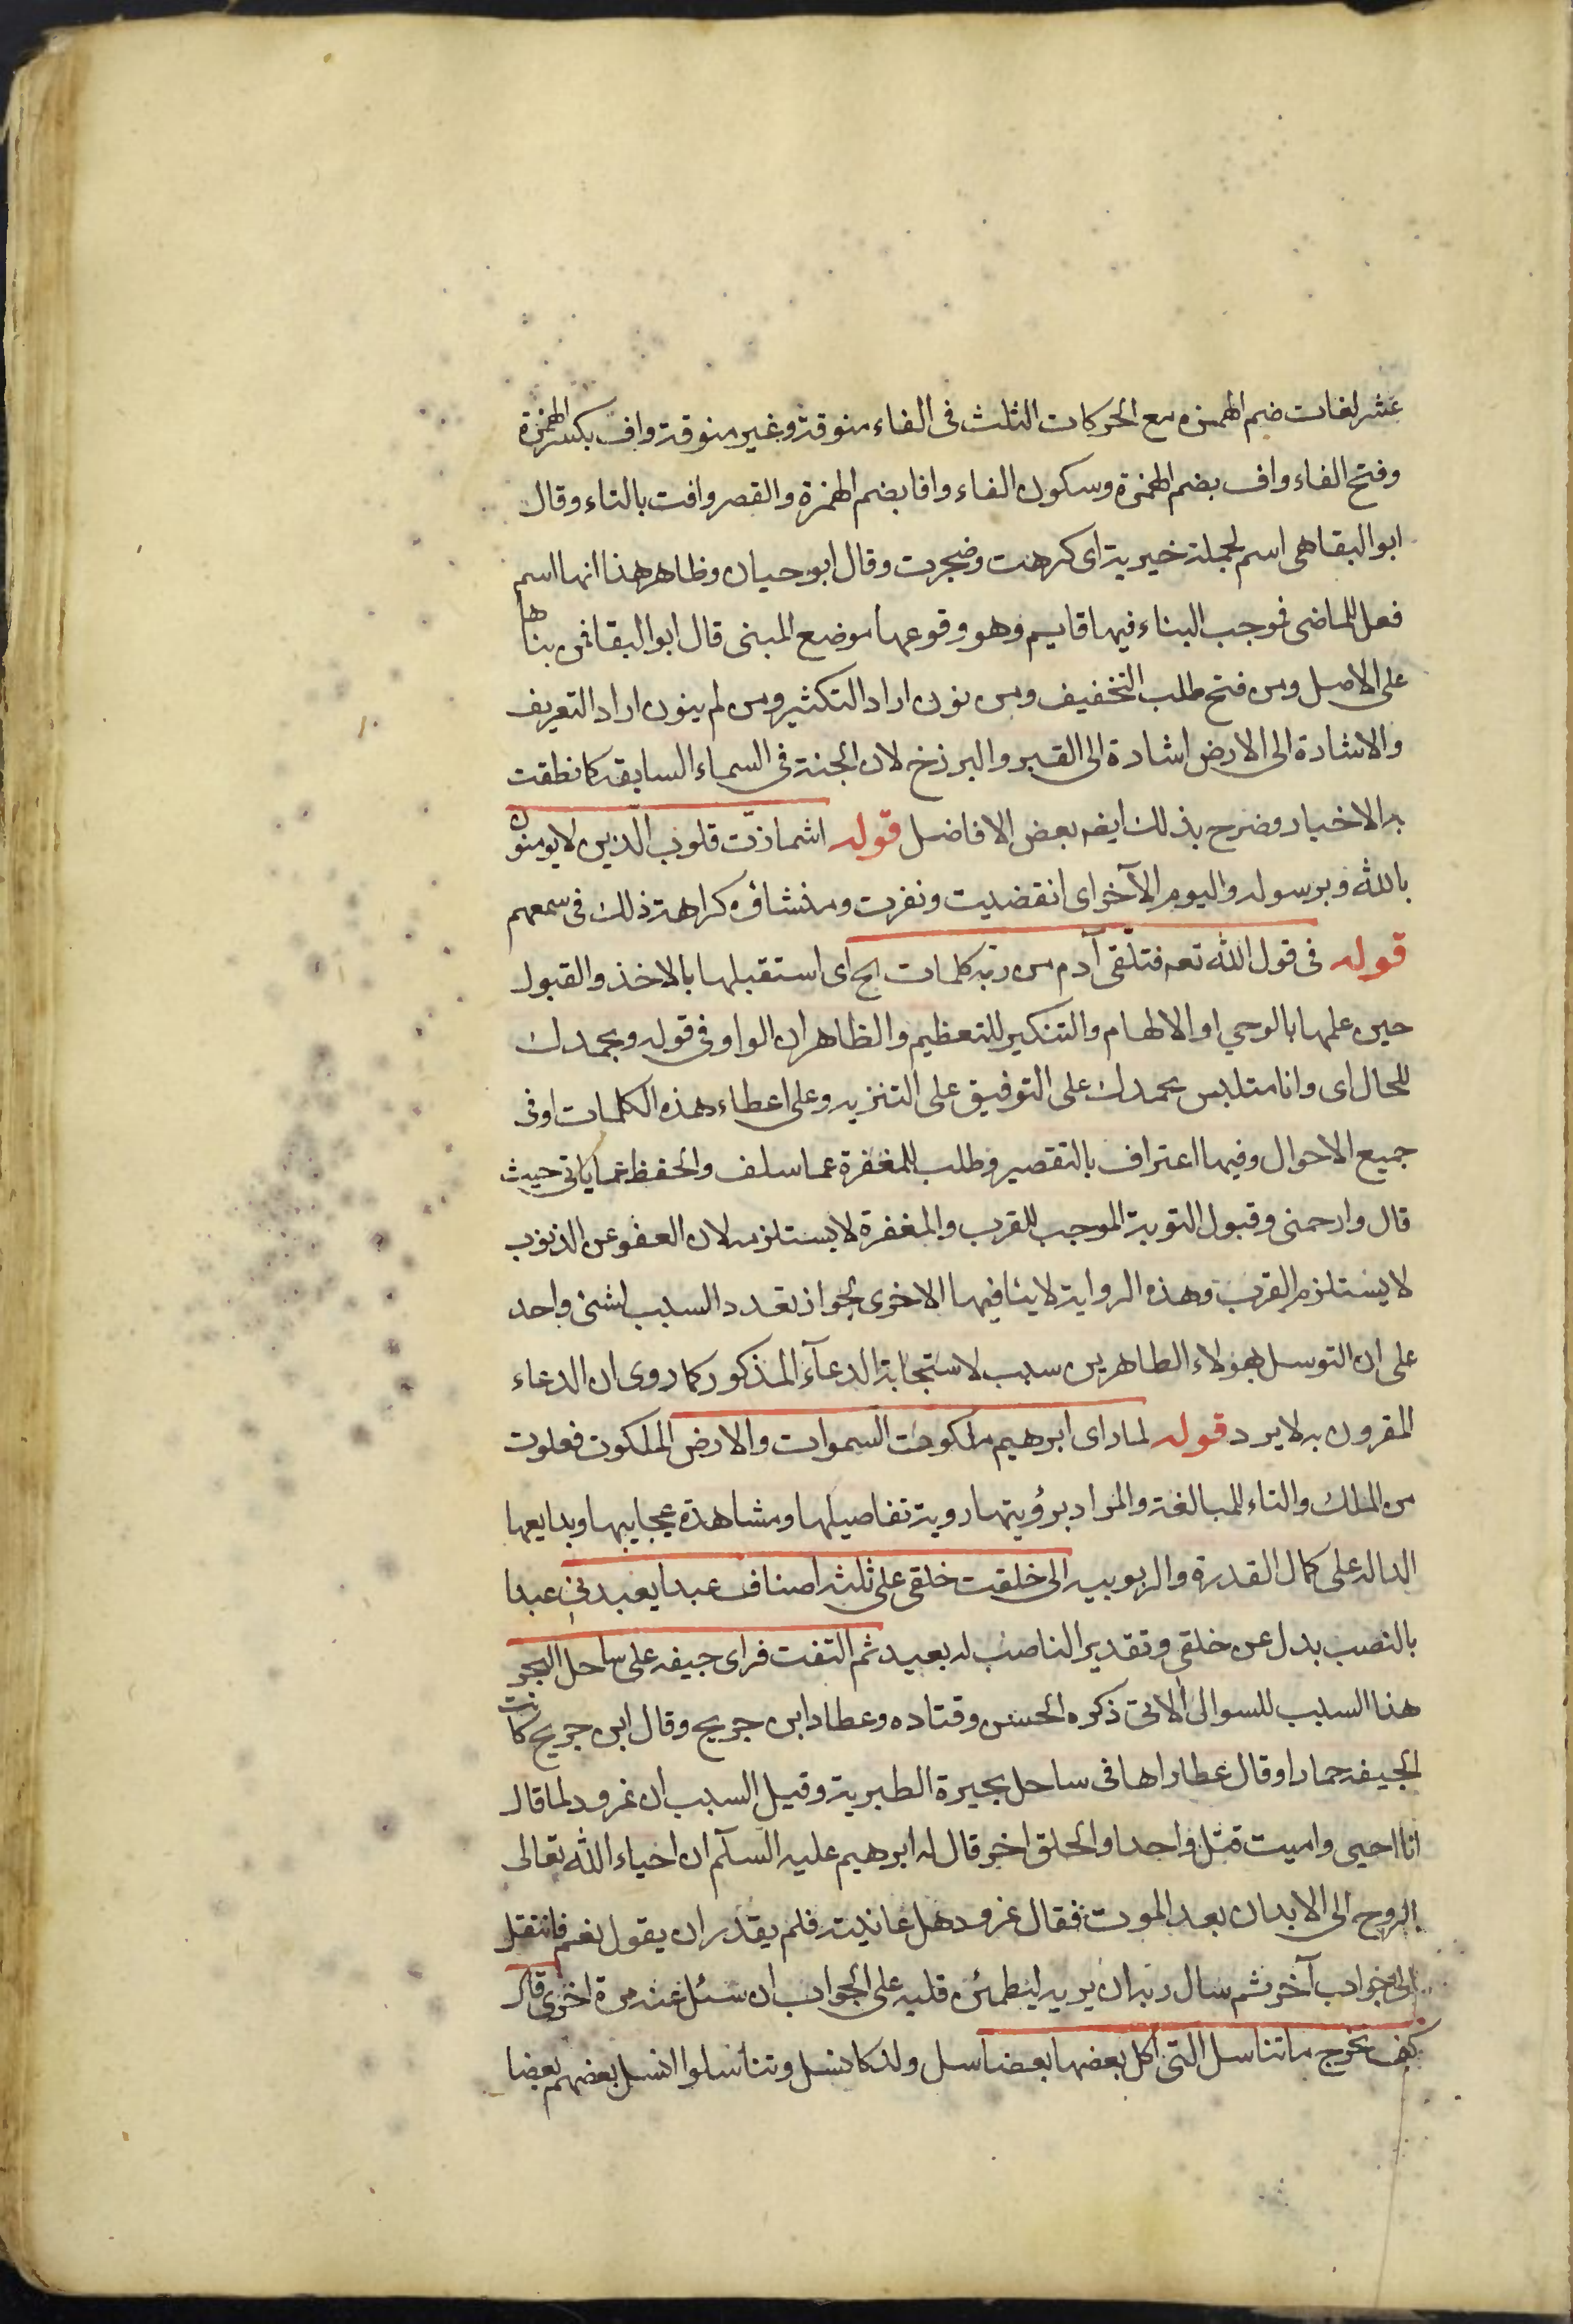 عشر لغات ضم الهمزه مع الحركات الثلث فى الفاء منونة وغير منونة واف بكسر الهمزة
وفتح الفاء واف بضم الهمزة وسكون الفاء وافا بضم الهمزة والقصر وافت بالتاء وقال
ابو البقا هى اسم لجملة خبرية اى كرهت وضجرت وقال ابو حيان وظاهر هذا انها اسم
فعل للماضى فوجب البناء فيها قايم وهو وقوعها موضع المبنى قال ابو البقا فمن بناها
على الاصل ومن فتح طلب التخفيف ومن نون اراد التكثير ومن لم ينون اراد التعريف
والاشارة الى الارض اشارة الى القبر والبرزخ لان الجنة فى السماء السابقه كما نطقت
به الاخبار وصرح بذلك ايضه بعض الافاضل قوله اشمازّت قلوب الّذين لايومنون
بالله وبرسوله واليوم الآخر اى انقضيت ونفرت ومنشاؤه كراهة ذلك فى سمعهم
قوله فى قول الله تعه فتلّقى آدم من ربّه كلمات الخ اى استقبلها بالاخذ والقبول
حين علمها بالوحي او الالهام والتنكير للتعظيم والظاهر ان الواو فى قوله وبحمدك
للحال اى وانا متلبس بحمدك على التوفيق على التنزيه وعلى اعطاء هذه الكلمات او فى
جميع الاحوال وفيها اعتراف بالتقصير وطلب للمغفرة عما سلف والحفظ عما ياتى حيث
قال وارحمنى وقبول التوبة الموجب للقرب والمغفرة لايستلزمه لان العفو عن الذنوب
لايستلزم القرب وهذه الرواية لاينافيها الاخرى لجواز تعدد السبب لشئ واحد
على ان التوسل بهؤلاء الطاهرين سبب لاستجابة الدعآء المذكور كما روى ان الدعاء
المقرون به لايرد قوله لما راى ابرهيم ملكوت السموات والارض الملكوت فعلوت
من الملك والتاء للمبالغة والمراد برؤيتها روية تفاصيلها ومشاهدة عجايبها وبدايعها
الداله على كمال القدرة والربوبيه الى خلقت خلقى على ثلثه اصناف عبدا يعبدنى عبدا
بالنصب بدل عن خلقى وتقدير الناصب له بعيد ثم التفت فراى جيفه على ساحل البحر
هذا السبب للسوال الاتى ذكره الحسن وقتاده وعطا وابن جريح وقال ابن جريح كانت
الجيفه حمارا وقال عطا راها فى ساحل بحيرة الطبرية وقيل السبب ان نمرود لما قال
انا احيى واميت قتل واحدا واطلق اخر قال له ابرهيم عليه السلآم ان احياء الله تعالى
الروح الى الابدان بعد الموت فقال نمرود هل عاينته فلم يقدر ان يقول نعم فانتقل
الى جواب آخر ثم سال ربه ان يريه ليطمئن قلبه على الجواب ان سئل عنه مرة اخرى قال
كيف تخرج ما تناسل التى اكل بعضها بعضا نسل ولد كانسل وتناسلوا انسل بعضهم بعضا